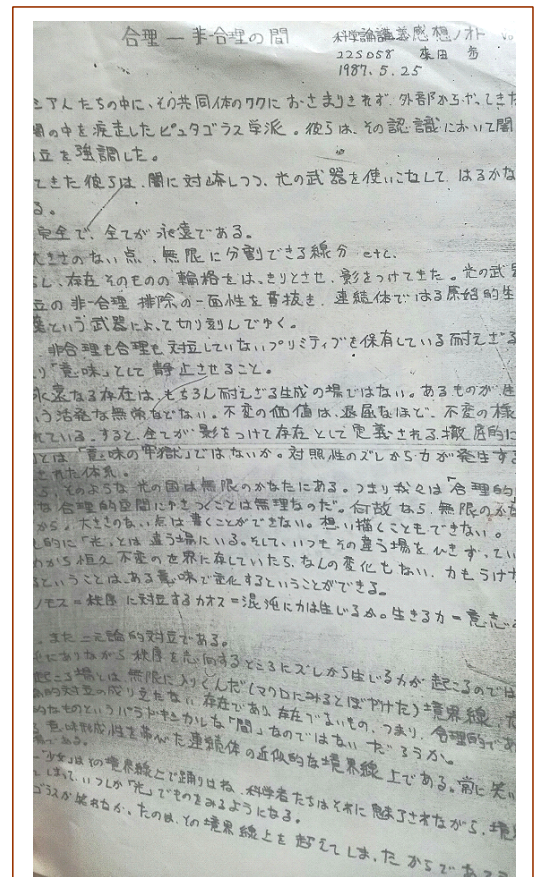 合理 ― 非合理の間
科学論講義感想ノオト
225058 柴田
1987.5.25
ニア人たちの中に、その共同体のワクにおさまりきれず、外部からやってきた
闇の中を疾走したピュタゴラス学派。彼らは、その認識において闇
立を強調した。
てきた彼らは、闇に対峙しつつ、光の武器を使いこなして、はるかな
る。
完全で、全てが永遠である。
大きさのない点、無限に分割できる線分 etc.
らし、存在そのものの輪格をはっきりとさせ、影をつけてきた。光の武器
立の非合理排除の一面性を貫抜き、連結体である原始的生
葉という武器によって切り刻んでゆく。
非合理も合理も対立していないプリミティブを保有している耐えざる
り「意味」として静止させること。
永遠なる存在は、もちろん耐えざる生成の場ではない。あるものが生
う活発な無常などない。不変の価値は、退屈なほど、不変の様
れている。すると、全てが影をつけて存在として定義される、徹底的に
とは「意味の牢獄」ではないか。対照性のズレから力が発生する
された体系。
る、そのような光の国は無限のかなたにある。つまり我々は「合理的
な合理的空間に行きつくことは無理なのだ」。何故なら、無限のかな
から。大きさのない点は書くことができない。想い描くこともできない。
し的に「光」とは違う場にいる。そして、いつもその違う場をひきずってい
わから恒久不変の世界に存していたら、なんの変化もない、力もうけな
るということは、ある意味で変化するということができる。
ノモス=秩序に対立するカオス=混沌に力は生じるか。生きる力=意志
、また二元論的対立である。
にありながら秩序を志向するところにズレから生じる力が起こるのでは
起こる場とは、無限に入りくんだ(マクロにみるとぼやけた)境界線
的対立の成り立たない存在であり存在でないもの、つまり、合理的であ
的なものというパラドキシカルな「間」なのではないだろうか。
意味形成性を帯びた連続体の近似的な境界線上である。前に笑い
である。
「少女」はその境界線上で踊りはね、科学者たちはそれに魅了されながら、境界
しまって、いつしか「光」でものをみるようになる。
ゴラスが笑わなかったのは、その境界線上を越えてしまったからであろう